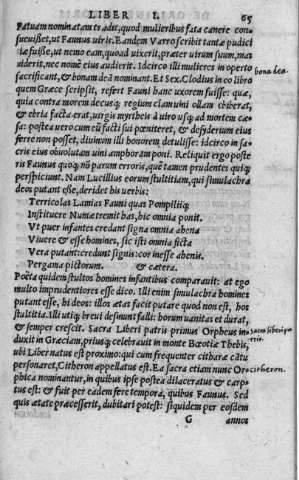 LIBER I 65
Fatuam nominatam tradit, quod mulieribus fata canere con-
sueuisset, ut Faunus uiris. Eandem Varro scribit tantæ pudici
tiæ fuisse, ut nemo eam, quoad uixerit, præter uirum suum, mas
uiderit, nec nomē eius audierit. Idcirco illi mulieres in operto
bona dea.
sacrificant, & bonam deā nominant. Et Sex. Clodius in eo libro
quem Græce scripsit, refert Fauni hanc uxorem fuisse: quæ,
quia contra morem decusq; regium clam uini ollam ebiberat,
& ebria facta erat, uirgis myrtheis à uiro usq; ad mortem cæ-
sa: postea uero cum eū facti sui pœniteret, & desyderium eius
ferre non posset, diuinum illi honorem detulisse: idcirco in sa-
cris eius obuolutam uini amphoram poni. Reliquit ergo poste
ris Faunus quoq; nō parum erroris, quē tamen prudentes quiq;
perspiciunt. Nam Lucillius eorum stultitiam, qui simulachra
deos putant esse, deridet his uerbis:
Terricolas Lamias Fauni quas Pompiliiq;
Instituere Numæ tremit has, hic omnia ponit.
Vt puer infantes credant signa omnia ahena
Viuere & esse homines, sic isti omnia ficta
Vera putant: credunt signis cor inesse ahenis.
Pergama pictorum. & cætera.
Poëta quidem stultos homines infantibus comparauit: at ego
multo imprudentiores esse dico. Illi enim simulachra homines
putant esse, hi deos: illos ætas facit putare quod non est, hos
stultitia. Illi utiq; breui desinunt falli: horum uanitas et durat,
& semper crescit. Sacra Liberi patris primus Orpheus in
sacra liberi pa
tris.
duxit in Græciam, priusq; celebrauit in monte Bœotiæ Thebis,
ubi Liber natus est proximo: qui cum frequenter citharæ cātu
personaret, Citheron appellatus est. Ea sacra etiam nunc Or-
citheron.
phica nominantur, in quibus ipse postea dilaceratus & carp-
tus est: & fuit per eadem fere tempora, quibus Faunus. Sed
quis ætate præcesserit, dubitari potest: siquidem per eosdem
G annos